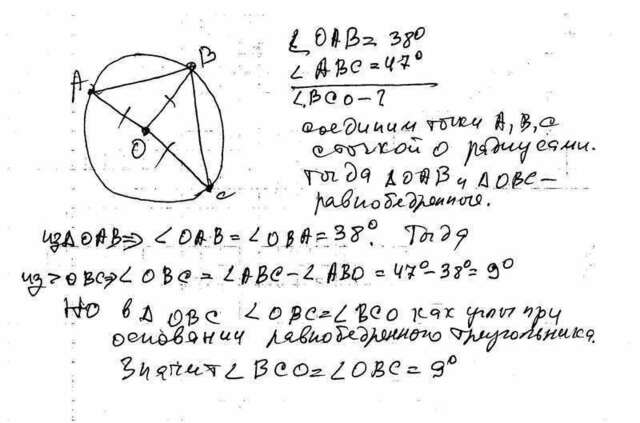 A
B
O
C
∠OAB = 38°
∠ABC = 47°
∠BCO - ?
соединим точки A, B, C
с точкой O радиусами.
Тогда ΔOAB и ΔOBC -
равнобедренные.
из ΔOAB => ∠OAB = ∠OBA = 38°. Тогда
из > OBC => ∠OBC = ∠ABC - ∠ABO = 47° - 38° = 9°
Но в Δ OBC ∠OBC = ∠BCO как углы при
основании равнобедренного треугольника.
Значит ∠BCO = ∠OBC = 9°